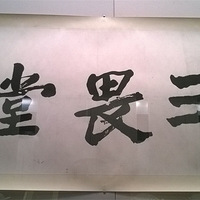 三畏堂